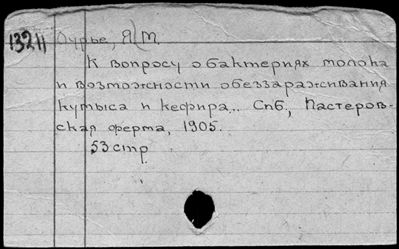 13211 Лурье, Я. М.
К вопросу о бактериях молока
и возможности обеззараживания
кумыса и кефира... Спб, Пастеров-
ская ферма, 1905.
53 стр